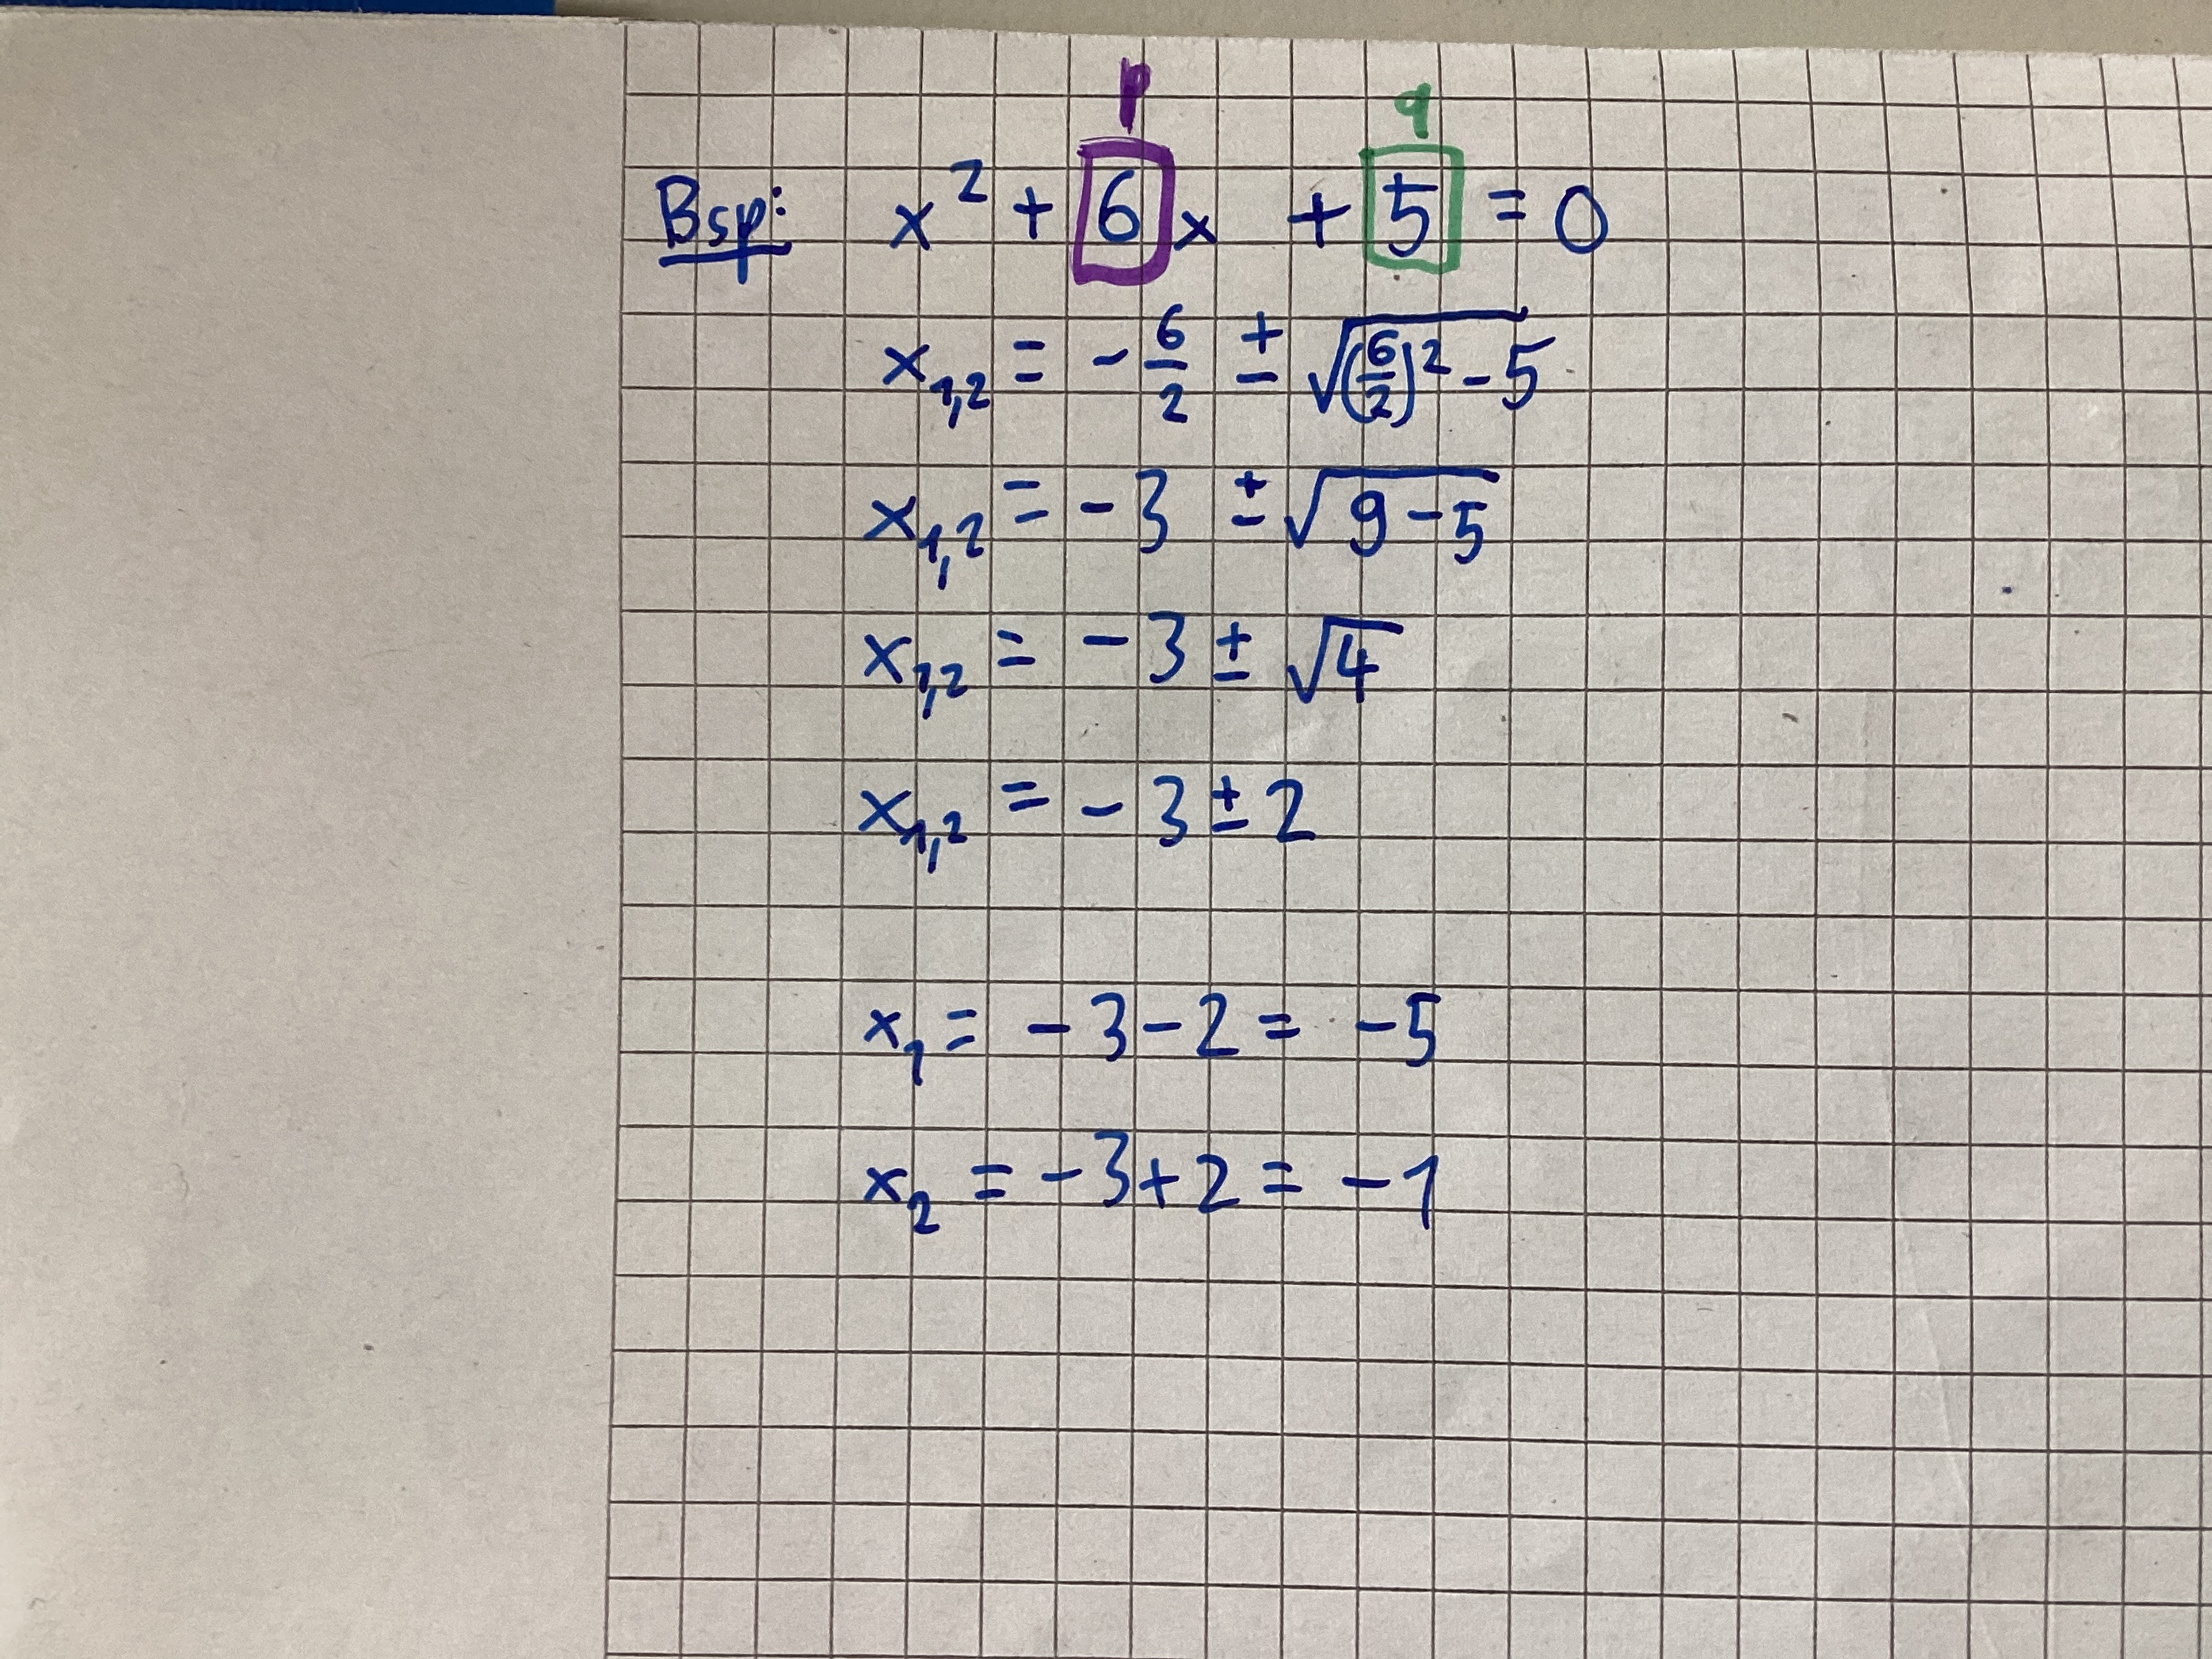 p q
Bsp: x² + 6x + 5 = 0
x₁,₂ = - 6/2 ± √(6/2)² - 5
x₁,₂ = - 3 ± √9 - 5
x₁,₂ = - 3 ± √4
x₁,₂ = - 3 ± 2
x₁ = - 3 - 2 = - 5
x₂ = - 3 + 2 = - 1